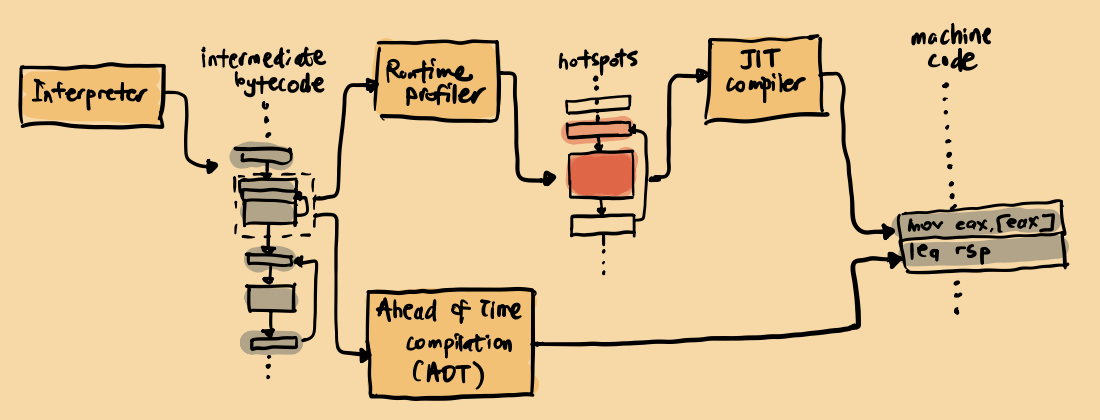 Interpreter
intermediate
bytecode
Runtime
profiler
hotspots
JIT
compiler
machine
code
mov eax,[eax]
leq rsp
Ahead of Time
compilation
(AOT)